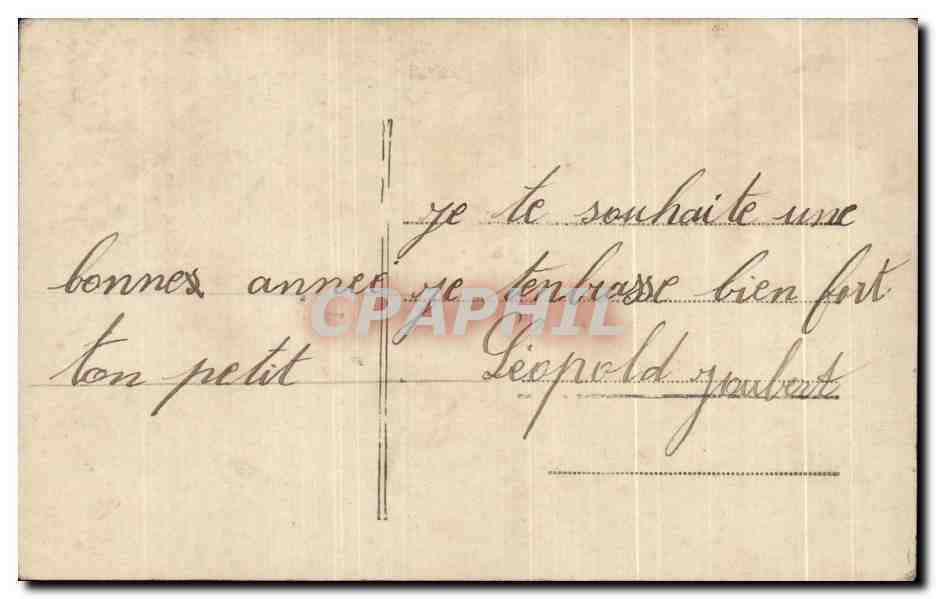 je te souhaite une
bonnes année je tenbrasse bien fort
ton petit Léopold Joubert
CPAPHIL